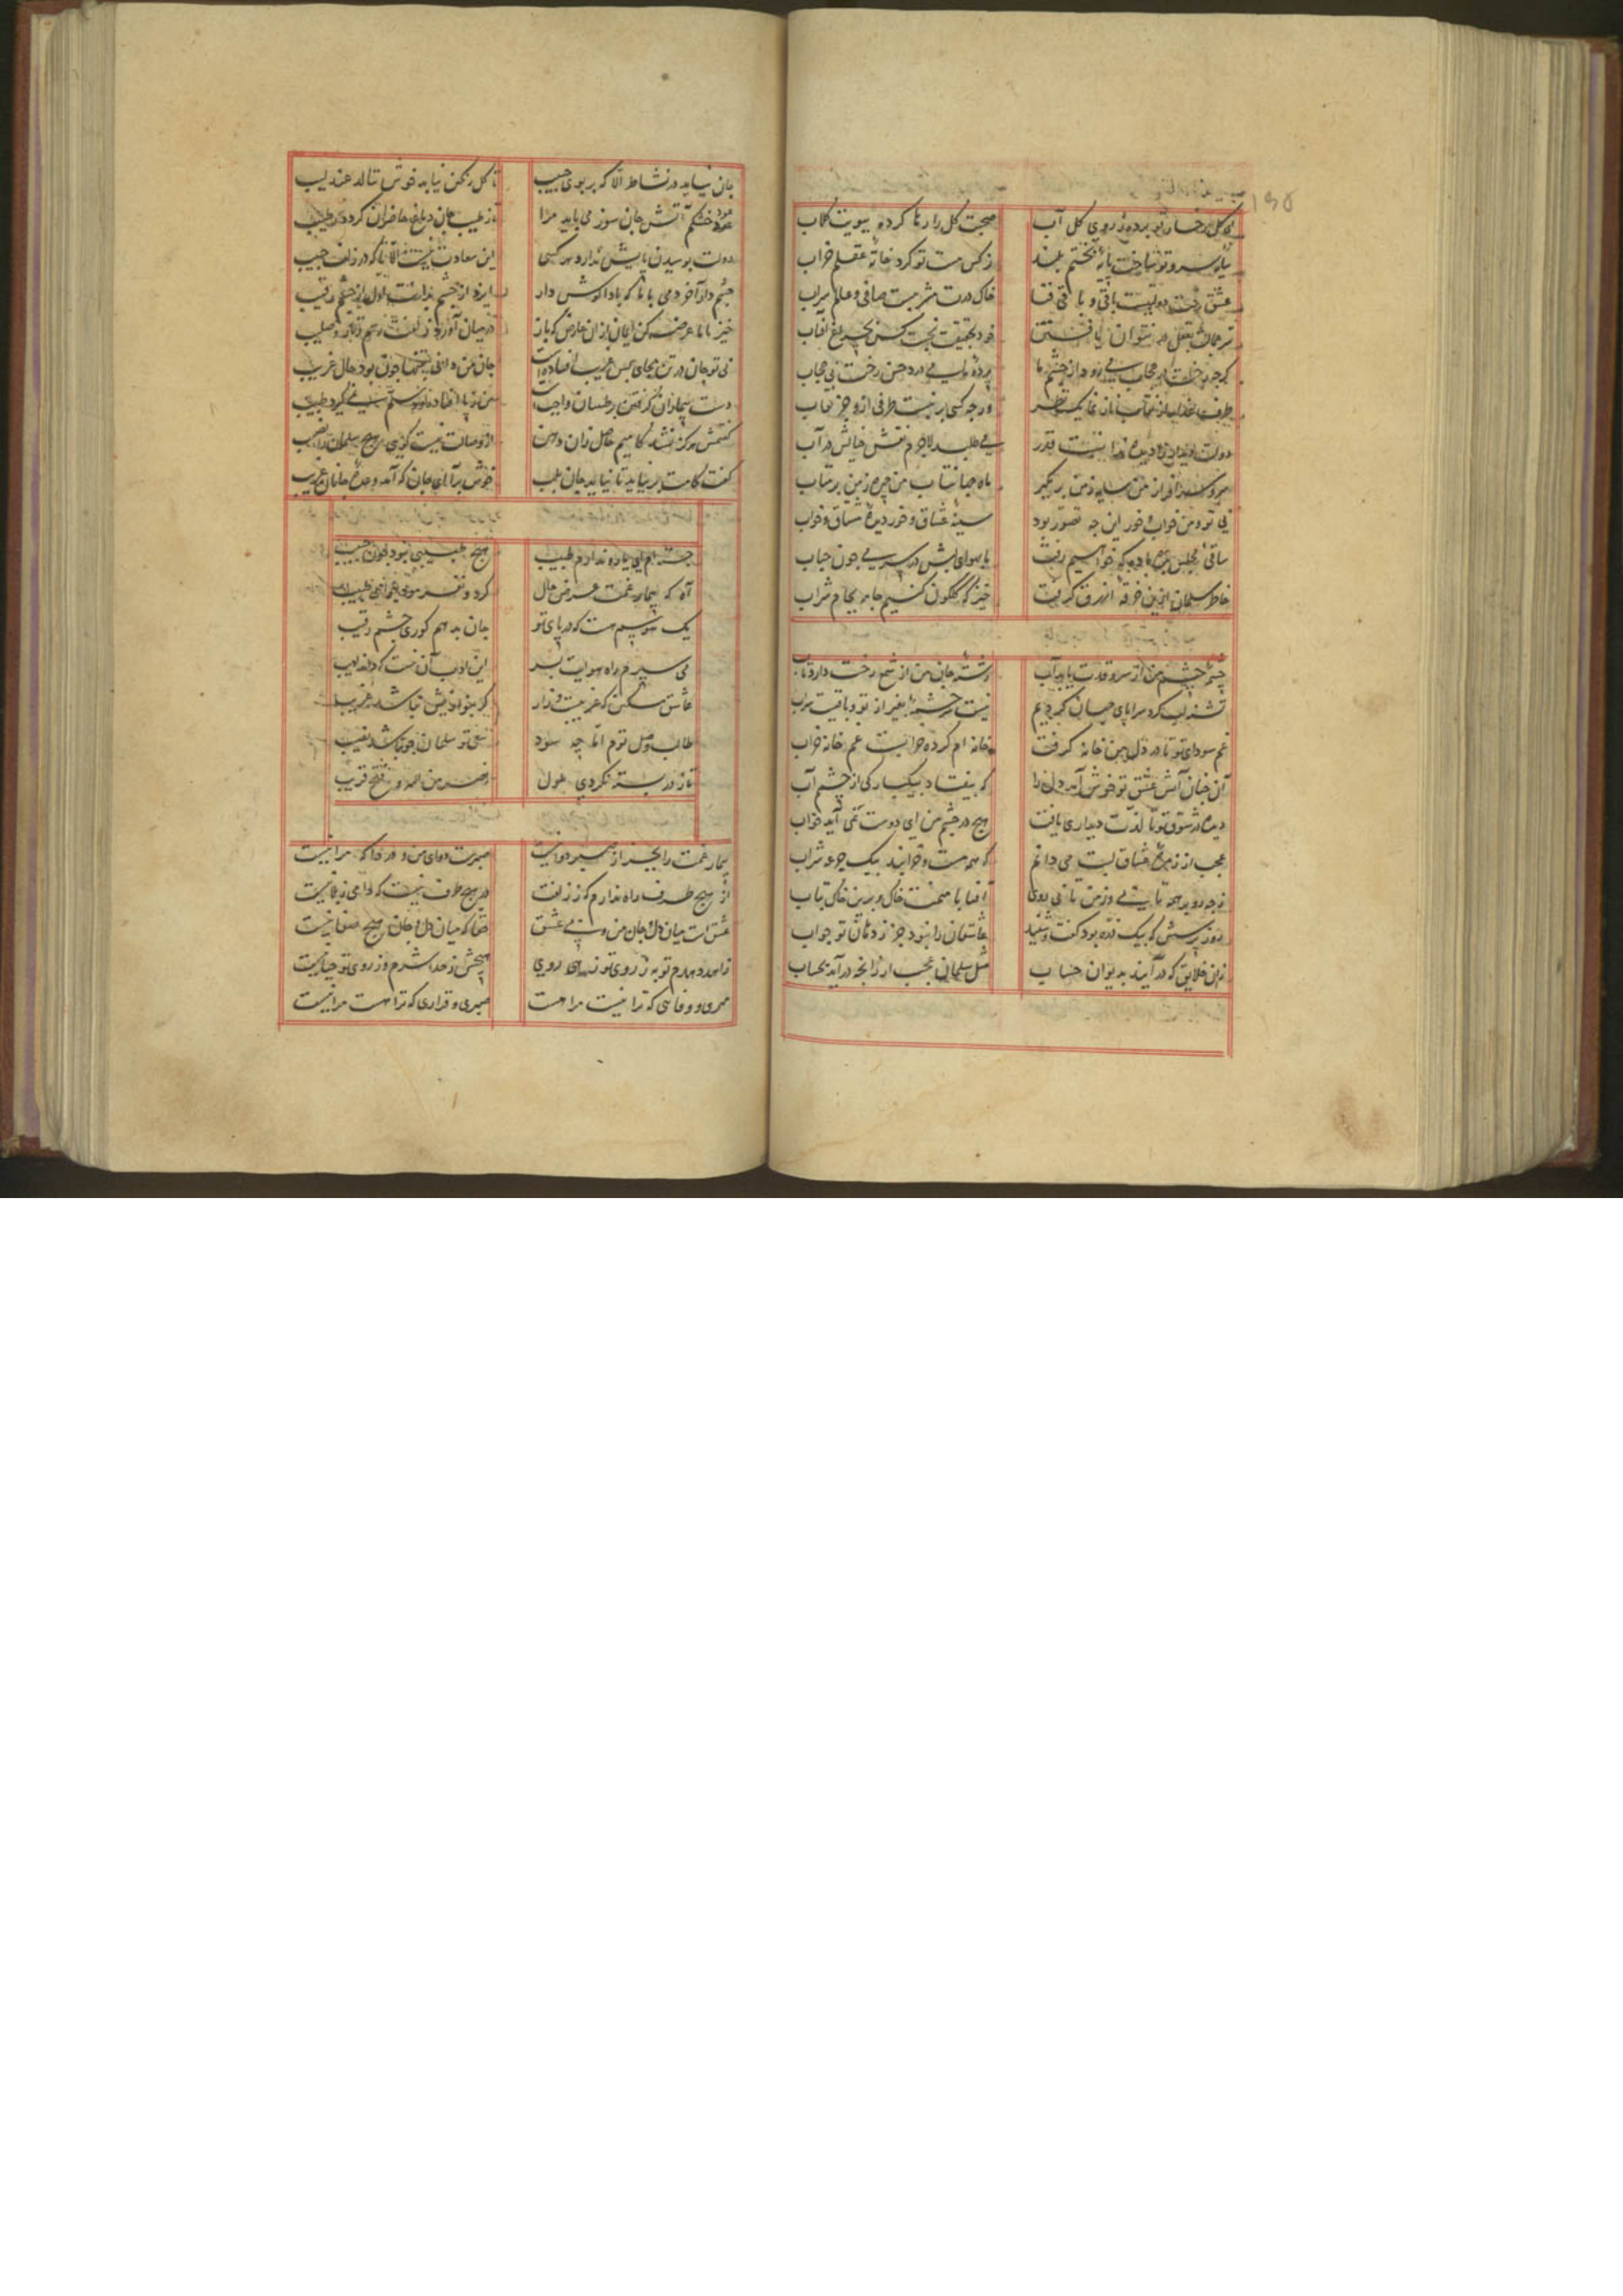 ای گل رخسار تو برده ز روی گل آب صحبت گل را رها کرده ببویت گلاب
سایه سرو تو ساخت پایه بختم بلند نرگس مست تو کرد خانه عقلم خراب
عشق رخت دولتیست باقی و باقی فنا خاک درت مشربیست صافی و عالم سراب
سر جمالت بعقل در نتوان یافتن خود بحقیقت نجست کس بچراغ آفتاب
گرچه حجاب می‌رود از چشم ما پرده ما می‌درد حسن رخت بی حجاب
طرف از نقاب باز نما یک نظر ورچه کسی بر نبست طرفی ازو جز نقاب
دولت دیدار را دیده ندانست قدر می‌طلبد لاجرم نقش خیالش در آب
سرو سرافراز من سایه ز من بر مگیر ماه جهانتاب من چهره ز من بر متاب
بی تو من و خواب و خور این چه تصور بود سینه عشاق و خور دیده مشتاق و خواب
ساقی مجلس بده باده که خواهیم رفت با هوای لبش در سر می چون حباب
خاطر سلمان ازین خرقه ازرق گرفت خیز که گلگون کنیم جامه بجام شراب
چشمه چشم من از سرو قدت یابد آب رشته جان من از شمع رخت دارد تاب
تشنه لب گرد سراپای جهان گردیدم نیست سرچشمه بغیر از تو و باقیست سراب
غم سودای تو تا در دل من خانه گرفت خانه ام کرده خرابست غم خانه خراب
آن چنان آتش عشق تو خوش آمد دل را که بیفتاد بیکبارگی از چشم آب
دیده در شوق تو تا لذت دیداری یافت هیچ در چشم من ای دوست نمی آید خواب
عجب از زمره عشاق لبت می دانم که همه مست و خرابند بیک جرعه شراب
آفتابا منت خاک و برین خاک بتاب
روز پرسش که بیک ذره بود گفت و شنید عاشقان را نبود جز ز دهان تو جواب
زان خلایق که در آیند بدیوان حساب مثل سلمان عجب ار زانکه در آید بحساب
جان نیاید در نشاط الا که بر بوی حبیب تا گل رنگین نیاید خوش ننالد عندلیب
عود خشکم آتش جان سوز می باید مرا تا ز طیب جان دماغ حاضران گردد رطیب
دولت بوسیدن پایش ندارد هر کسی این سعادت نیست الا که در زلف حبیب
چشم دار آخر دمی با ما که بادا گوش دار ایزد از چشم بدانت اول از چشم رقیب
خیز تا ما عرضه کن ایمان از آن عارض که باز در میان آورد زلفت رسم زنار و صلیب
بی تو جان در تن بجای بس غریب افتاده است جان من دانی چون بود حال غریب
دست بیماران گرفتن بر طبیبان واجبست من ز پا افتاده ام دستم نمی گیرد طبیب
گفتمش هرگز نشد کامیم حاصل زان دهن از وصالت نیست گویی هیچ سلمان را نصیب
گفت کامت بر نیاید تا نیاید جان بلب خوش برآ ای جان که آمد وعده جانان قریب
خسته ام ای یار و ندارم طبیب هیچ طبیبی نبود چون حبیب
آه که بیمار غمت عرض حال کرد و نفرمود جوابی طبیب
یک هوسم هست که در پای تو جان بدهم کوری چشم رقیب
می سپرم راه هوایت بسر این ادب آن نیست که داند ادیب
عاشق مسکن که غریبست و زار گر بنوازیش نباشد غریب
طالب وصل توم اما چه سود سعی تو سلمان چو نباشد نصیب
تا ز در بسته نگردی ملول نصر من الله و فتح قریب
بیمار غمت را بجز از صبر دوا نیست صبرست دوای من و دردا که مرا نیست
از هیچ طرف راه ندارم که ز زلفت در هیچ طرف نیست که دامی ز بلا نیست
عشق است میان دل و جان من و بی عشق حقا که میان دل و جان هیچ صفا نیست
زاهد دهدم توبه ز روی تو زهی روی هیچش ز خدا شرم و ز روی تو حیا نیست
مهری و وفایی که ترا نیست مرا هست صبری و قراری که ترا هست مرا نیست